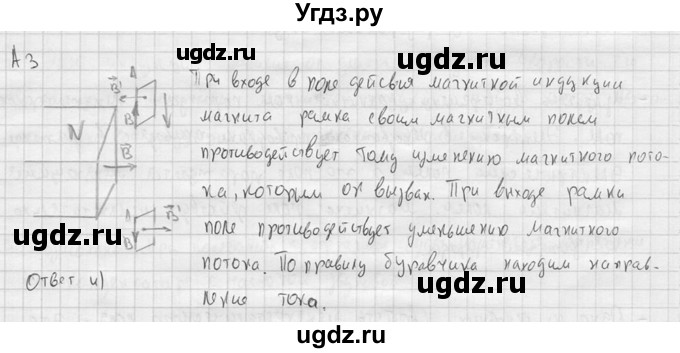 Угдз.ру
А3
При входе в поле действия магнитной индукции
магнита рамка своим магнитным полем
противодействует тому изменению магнитного пото-
ка, которым он вызван. При выходе рамки
поле противодействует уменьшению магнитного
потока. По правилу буравчика находим направ-
ление тока.
A
B'
B
N
B
A
B'
B
Ответ 4)
ugdz.ru
ugdz.ru
ugdz.ru
ugdz.ru
ugdz.ru
ugdz.ru
ugdz.ru
ugdz.ru